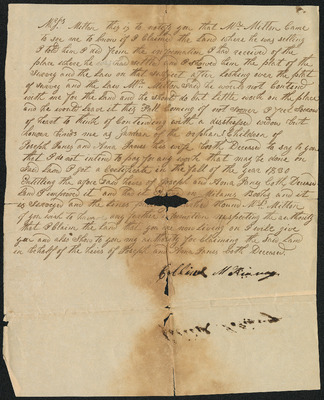 Mrs Milton this is to notify you that Mr Milton Came
to see me to know if I Claimed the Land where he was setling
I told him I did from the information I had received of the
place where he was and I showed him the plat of the
survey and the Law on that subject after looking over the plat
of survey and the law Mr Milton said he would not Contend
with me for the land and he should do but little work on the place
and he would leave it this Fall Coming if not sooner I feel
at heart to think of Contending with a distressed widow But
honour binds me as Gardean of the orphans Children of
Joseph Janes and Anna Janes his wife Both Deceased to say to you
that I do not intend to pay for any work that may be done on
said Land I got a Certificate in the fall of the year 1830
the aforesaid heirs of Joseph and Anna Janes Both Deceased
Land I and it
is surveyed and the lines Round Mr Milton
if you want to have any farther information respecting the authority
that I Claim the Land that you are now living on I will give
you and also Show to you my authority for Claiming the said Land
in behalf of the heirs of Joseph and Anna Janes Both Deceased.
Collin McKinney